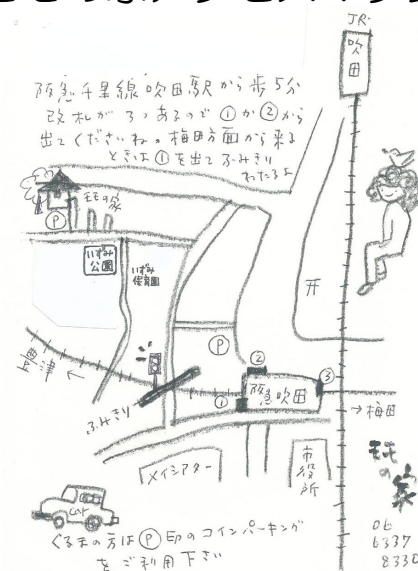 JR
吹田
阪急千里線吹田駅から歩5分
改札が3つあるので①か②から
出てくださいね。梅田方面から来る
ときは①を出てふみきり
わたるよ
モモの家
P
いずみ
公園
いずみ
保育園
P
②
③
①
阪急吹田
豊津
←
→梅田
ふみきり
メイシアター
市役所
モモの家
06
6337
8330
car
くるまの方はⓅ印のコインパーキング
をご利用下さい